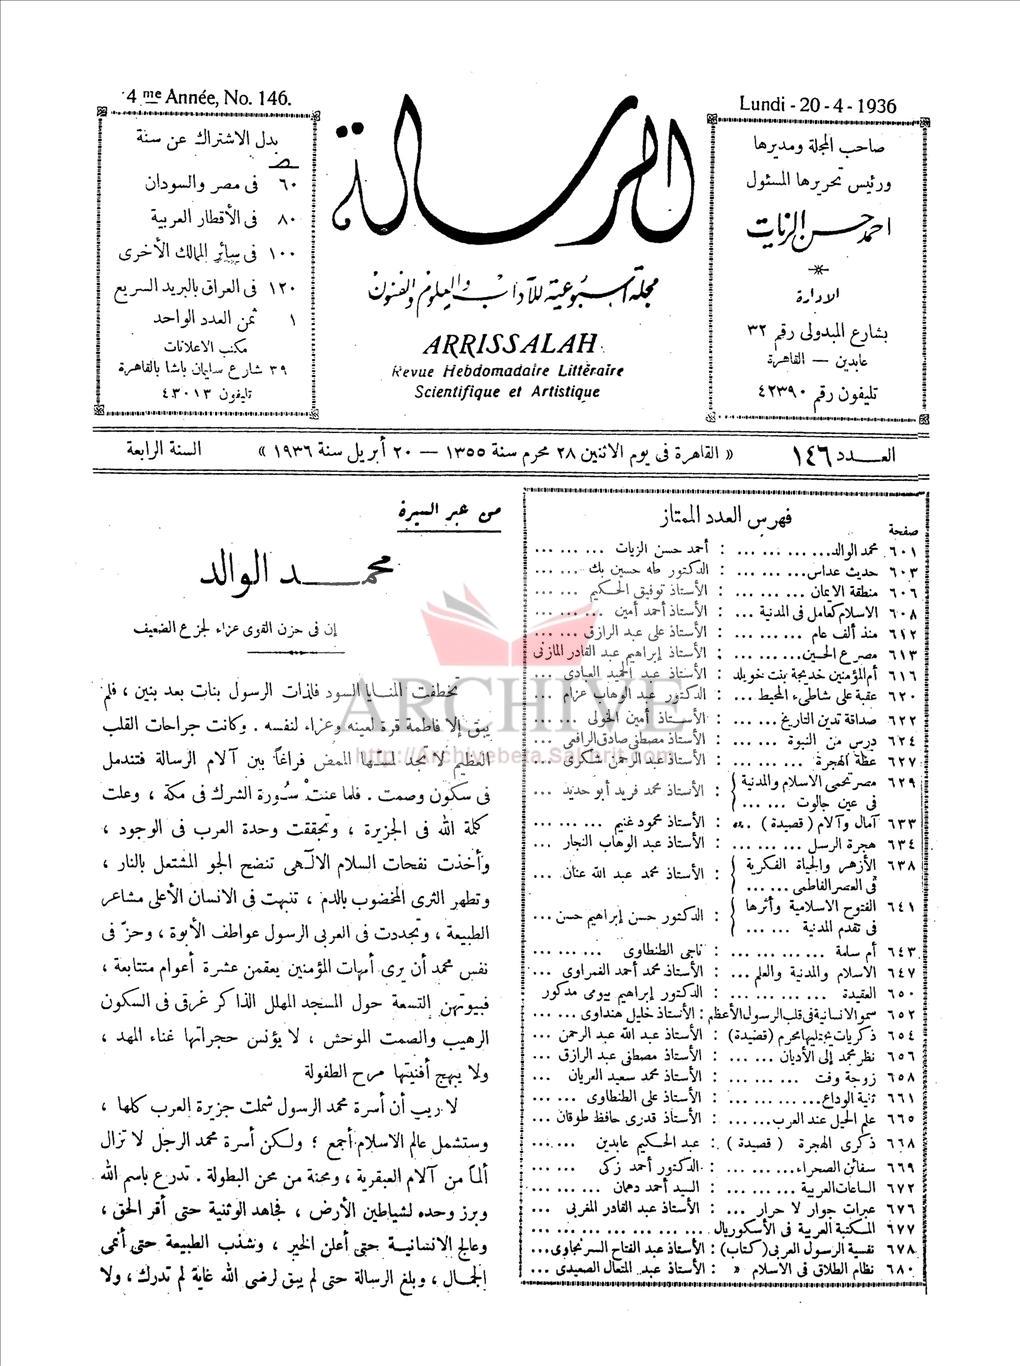 4 me Année, No. 146.
Lundi - 20 - 4 - 1936
بدل الاشتراك عن سنة
٦٠ فى مصر والسودان
٨٠ فى الأقطار العربية
١٠٠ فى سائر الممالك الأخرى
١٢٠ فى العراق بالبريد السريع
١ ثمن العدد الواحد
مكتب الاعلانات
٣٩ شارع سليمان باشا بالقاهرة
تليفون ٤٣٠١٣
الرسالة
مجلة أسبوعية للآداب والعلوم والفنون
ARRISSALAH
Revue Hebdomadaire Littéraire
Scientifique et Artistique
صاحب المجلة ومديرها
ورئيس تحريرها المسئول
احمد حسن الزيات
الادارة
بشارع المبدولى رقم ٣٢
عابدين — القاهرة
تليفون رقم ٤٢٣٩٠
العـــدد ١٤٦ « القاهرة فى يوم الاثنين ٢٨ محرم سنة ١٣٥٥ — ٢٠ أبريل سنة ١٩٣٦ » السنة الرابعة
فهرس العدد الممتاز
صفحة
٦٠١ محمد الوالد ... ... ... : أحمد حسن الزيات ... ... ...
٦٠٣ حديث عداس ... ... ... : الدكتور طه حسين بك ... ...
٦٠٦ منطقة الايمان ... ... ... : الأستاذ توفيق الحكيم ... ...
٦٠٨ الاسلام كعامل فى المدنية ... : الأستاذ أحمد أمين ... ... ...
٦١٢ منذ ألف عام ... ... ... : الأستاذ على عبد الرازق ... ...
٦١٣ مصرع الحسين ... ... ... : الأستاذ إبراهيم عبد القادر المازنى
٦١٦ أم المؤمنين خديجة بنت خويلد : الأستاذ عبد الحميد العبادى ...
٦٢٠ عقبة على شاطىء المحيط ... : الدكتور عبد الوهاب عزام ...
٦٢٢ صداقة تدين التاريخ ... ... : الأستاذ أمين الخولى ... ...
٦٢٤ درس من النبوة ... ... : الأستاذ مصطفى صادق الرافعى ...
٦٢٧ عظة الهجرة ... ... ... : الأستاذ عبد الرحمن شكرى ...
٦٢٩ مصر تحمى الاسلام والمدنية فى عين جالوت ... ... : الأستاذ محمد فريد أبو حديد ...
٦٣٣ آمال وآلام ( قصيدة ) ... : الأستاذ محمود غنيم ... ... ...
٦٣٤ هجرة الرسل ... ... ... : الأستاذ عبد الوهاب النجار ...
٦٣٨ الأزهر والحياة الفكرية فى العصر الفاطمى ... ... : الأستاذ محمد عبد الله عنان ...
٦٤١ الفتوح الاسلامية وأثرها فى تقدم المدنية ... ... : الدكتور حسن إبراهيم حسن ...
٦٤٣ أم سلمة ... ... ... ... : ناجى الطنطاوى ... ... ...
٦٤٧ الاسلام والمدنية والعلم ... : الأستاذ محمد أحمد الغمراوى ...
٦٥٠ العقيدة ... ... ... ... : الدكتور إبراهيم بيومى مدكور
٦٥٢ سمو الانسانية فى قلب الرسول الأعظم : الأستاذ خليل هنداوى ... ...
٦٥٤ ذكريات يجتليها محرم (قصيدة) : الأستاذ عبد الله عبد الرحمن ...
٦٥٦ نظر محمد إلى الأديان ... ... : الأستاذ مصطفى عبد الرازق ...
٦٥٨ زوجة وفت ... ... ... : الأستاذ محمد سعيد العريان ...
٦٦١ ثنية الوداع ... ... ... : الأستاذ على الطنطاوى ... ...
٦٦٥ علم الخيل عند العرب ... ... : الأستاذ قدرى حافظ طوقان ...
٦٦٨ ذكرى الهجرة ( قصيدة ) : عبد الحكيم عابدين ... ...
٦٦٩ سفائن الصحراء ... ... ... : الدكتور أحمد زكى ... ...
٦٧٢ الساعات العربية ... ... ... : السيد أحمد دهمان ... ...
٦٧٦ عبرات جوار لا حرار ... : الأستاذ عبد القادر المغربى ...
٦٧٧ المكتبة العربية فى الأسكوريال ... ... ...
٦٧٨ نفسية الرسول العربى (كتاب) : الأستاذ عبد الفتاح السرنجاوى ...
٦٨٠ نظام الطلاق فى الاسلام » : الأستاذ عبد المتعال الصعيدى ...
من عبر السيرة
محمـــد الوالد
إن فى حزن القوى عزاء لجزع الضعيف
تخطفت المنايا السود فلذات الرسول بنات بعد بنين ، فلم
يبق إلا فاطمة قرة لعينه وعزاء لنفسه . وكانت جراحات القلب
العظيم لا تجد لمسها الممض فراغاً بين آلام الرسالة فتندمل
فى سكون وصمت . فلما عنتْ سُورة الشرك فى مكة ، وعلت
كلمة الله فى الجزيرة ، وتحققت وحدة العرب فى الوجود ،
وأخذت نفحات السلام الالٰهى تنضح الجو المشتعل بالنار ،
وتطهر الثرى المخضوب بالدم ، تنبهت فى الانسان الأعلى مشاعر
الطبيعة ، وتجددت فى العربى الرسول عواطف الأبوة ، وحزّ فى
نفس محمد أن يرى أمهات المؤمنين يعقمن عشرة أعوام متتابعة ،
فبيوتهن التسعة حول المسجد المهلل الذاكر غرقى فى السكون
الرهيب والصمت الموحش ، لا يؤنس حجراتها غناء المهد ،
ولا يبهج أفنيتها مرح الطفولة
لا ريب أن أسرة محمد الرسول شملت جزيرة العرب كلها ،
وستشمل عالم الاسلام أجمع ؛ ولكن أسرة محمد الرجل لا تزال
ألماً من آلام العبقرية ، ومحنة من محن البطولة . تدرع باسم الله
وبرز وحده لشياطين الأرض ، فجاهد الوثنية حتى أقر الحق ،
وعالج الانسانية حتى أعلن الخير ، وشذب الطبيعة حتى أنمى
الجمال ، وبلغ الرسالة حتى لم يبق لرضى الله غاية لم تدرك ، ولا
ARCHIVE
http://Archivebeta.Sakhrit.com